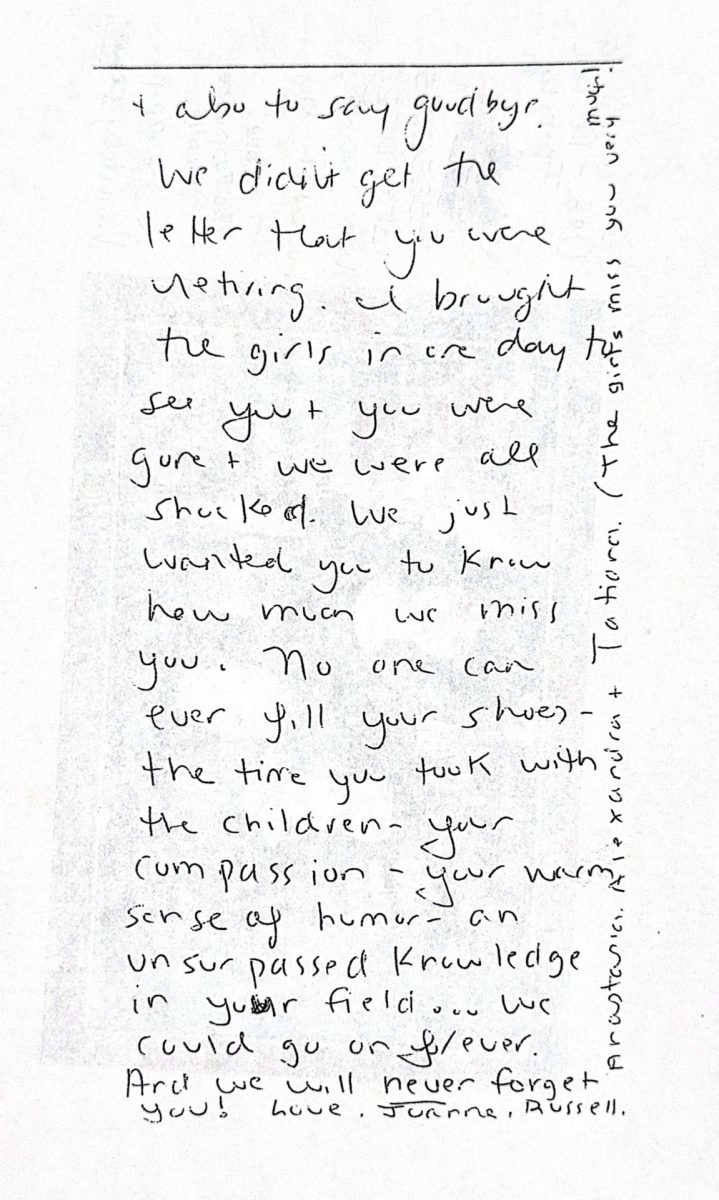 + also to say goodbye.
We didn't get the
letter that you were
retiring. I brought
the girls in one day to
see you + you were
gone + we were all
shocked. We just
wanted you to know
how much we miss
you. No one can
ever fill your shoes -
the time you took with
the children - your
compassion - your warm
sense of humor - an
unsurpassed knowledge
in your field... We
could go on forever.
And we will never forget
you! Love, Joanne, Russell,
Anastasia, Alexandra + Tatiana. (The girls miss you very
much!